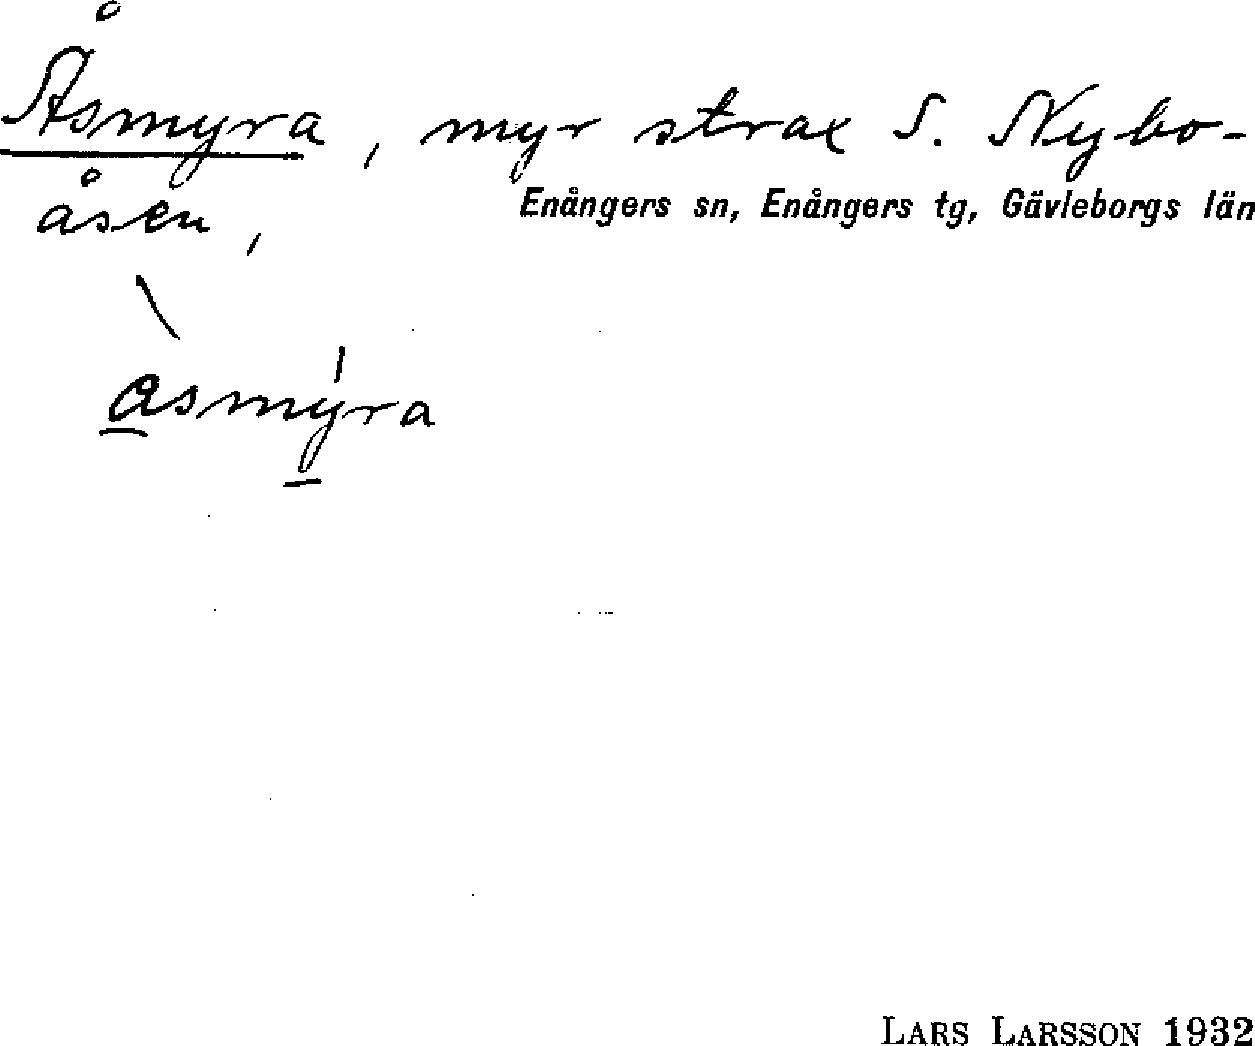 Åsmyra, myr strax S. Nybo-
åsen,
Enångers sn, Enångers tg, Gävleborgs län
àsmýra
LARS LARSSON 1932